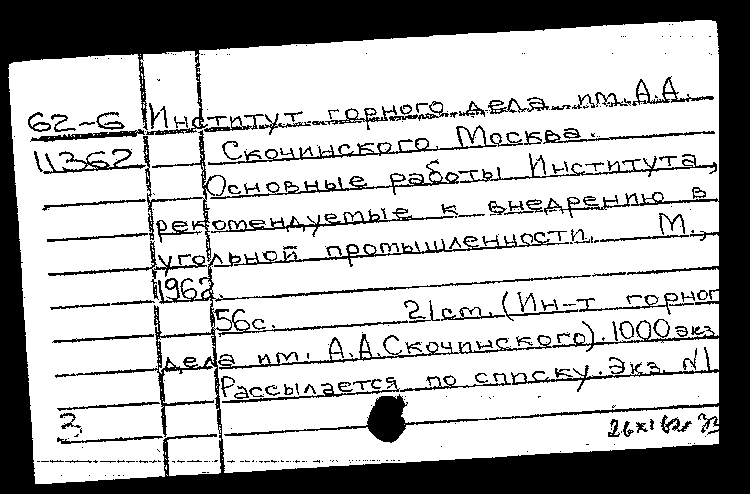 62-6 Институт горного дела им. А.А.
11362 Скочинского. Москва.
Основные работы Института,
рекомендуемые к внедрению в
угольной промышленности. М.,
1962.
56с. 21см. (Ин-т горног
дела им. А.А.Скочинского). 1000 экз
Рассылается по списку. Экз. №1
3